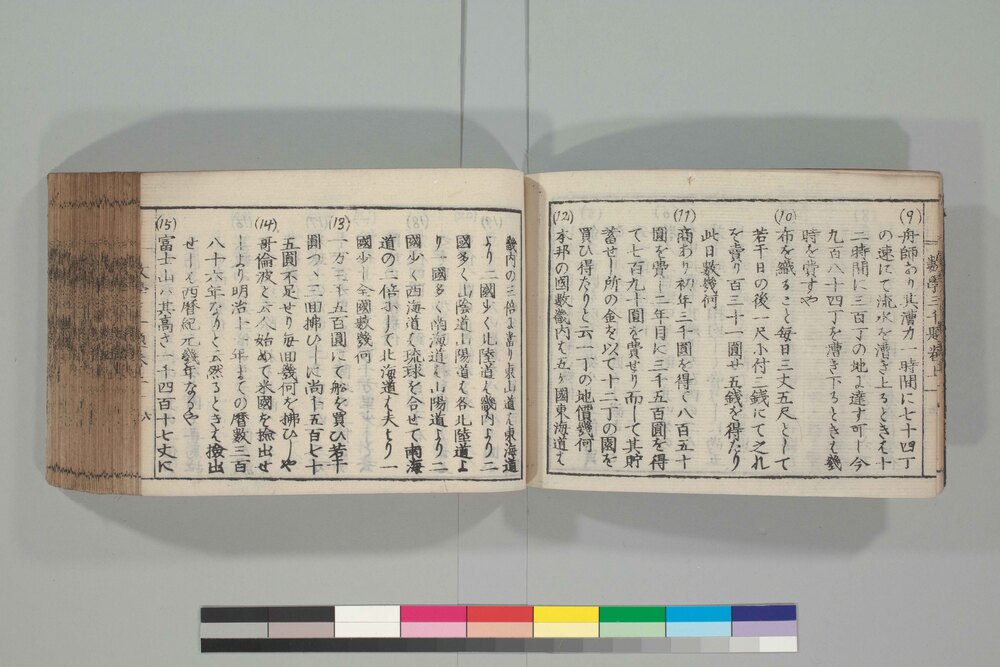 (9) 舟師あり其漕力一時間に七十四丁
の速にて流水を漕き上るときは十
二時間に三百丁の地に達す可し今
九百八十四丁を漕き下るときは幾
時を費すや
(10) 布を織ること毎日三丈五尺として
若干日の後一尺に付三銭にて之れ
を賣り百三十一圓廿五銭を得たり
此日數幾何
(11) 商あり初年三千圓を得て八百五十
圓を費し二年目に三千五百圓を得
て七百九十圓を費せり而して其貯
蓄せし所の金を以て十二丁の園を
買ひ得たりと云一丁の地價幾何
(12) 本邦の國數畿内は五ヶ國東海道は
畿内の三倍に當り東山道は東海道
より二國少く北陸道は畿内より二
國多く山陰道山陽道は各北陸道よ
り一國多く南海道は山陽道より二
國少く西海道は琉球を合せて南海
道の二倍にして北海道は夫より一
國少し全國數幾何
(13) 一万三千五百圓にて船を買ひ若干
圓つゝ三回拂ひしに尚ほ五百七十
五圓不足せり毎回幾何を拂ひしや
(14) 哥倫波と云人始めて米國を撿出せ
しより明治十一年までの暦數三百
八十六年なりと云然るときは撿出
せしは西暦紀元幾年なりや
(15) 富士山は其高さ一千四百十七丈に
六